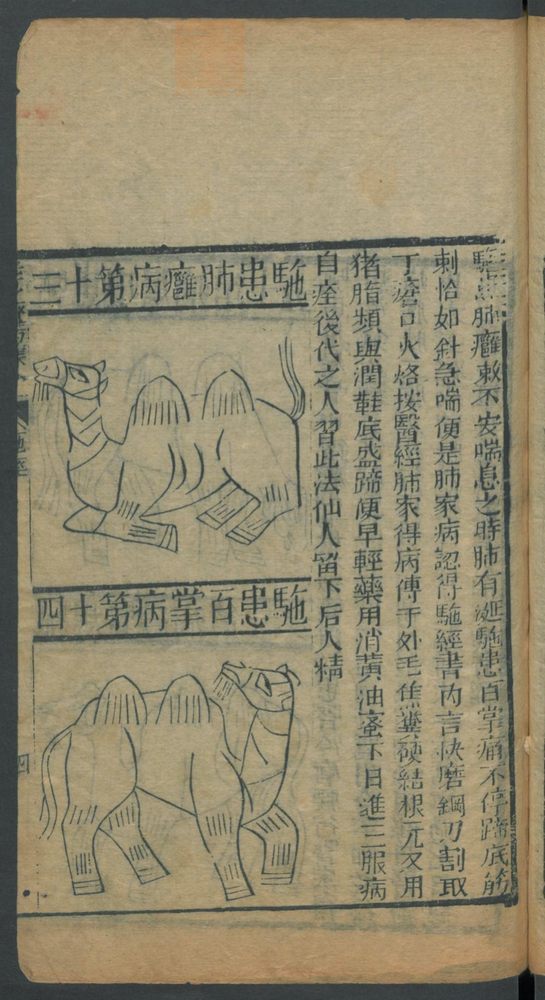 駞患肺癰𠻳不安喘息之時肺有涎駞患百掌痛不停蹄底筋
刺恰如針急喘便是肺家病認得駞經書内言快磨鋼刀割取
丁瘡口火烙按醫經肺家得病傳于外毛焦糞硬結根元又用
猪脂頻與潤鞋底盛蹄便早輕藥用消黄油蜜下日進三服病
自痊後代之人習此法仙人留下后人精
駞患肺癰病第十三
駞患百掌病第十四
四